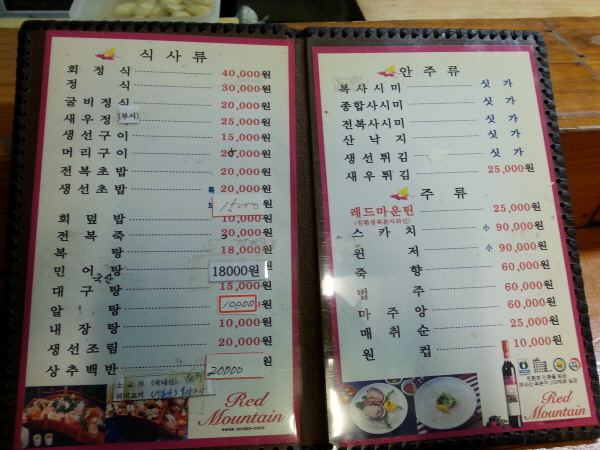 식사류
회정식 40,000원
정식 30,000원
굴비정식 20,000원
새우정 (부서) 25,000원
생선구이 15,000원
머리구이 20,000원
전복초밥 20,000원
생선초밥 20,000원
15000
회덮밥 10,000원
전복죽 20,000원
복탕 18,000원
민어탕 18000원
국산
대구탕 15,000원
알탕 10000 원
내장탕 10,000원
생선조림 20,000원
상추백반 20000 원
소고기 (국내산)
돼지고기
Red Mountain
안주류
복사시미 싯가
종합사시미 싯가
전복사시미 싯가
산낙지 싯가
생선튀김 싯가
새우튀김 25,000원
주류
레드마운틴 25,000원
(친환경복분자와인)
스카치 小 90,000원
윈저 小 90,000원
죽향 60,000원
법주 60,000원
마주앙 60,000원
매취순 25,000원
원컵 10,000원
친환경 인증을 받은
복분자 100%로 빚은
Red Mountain